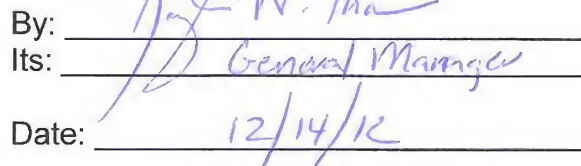 By:
Its: General Manager
Date: 12/14/12